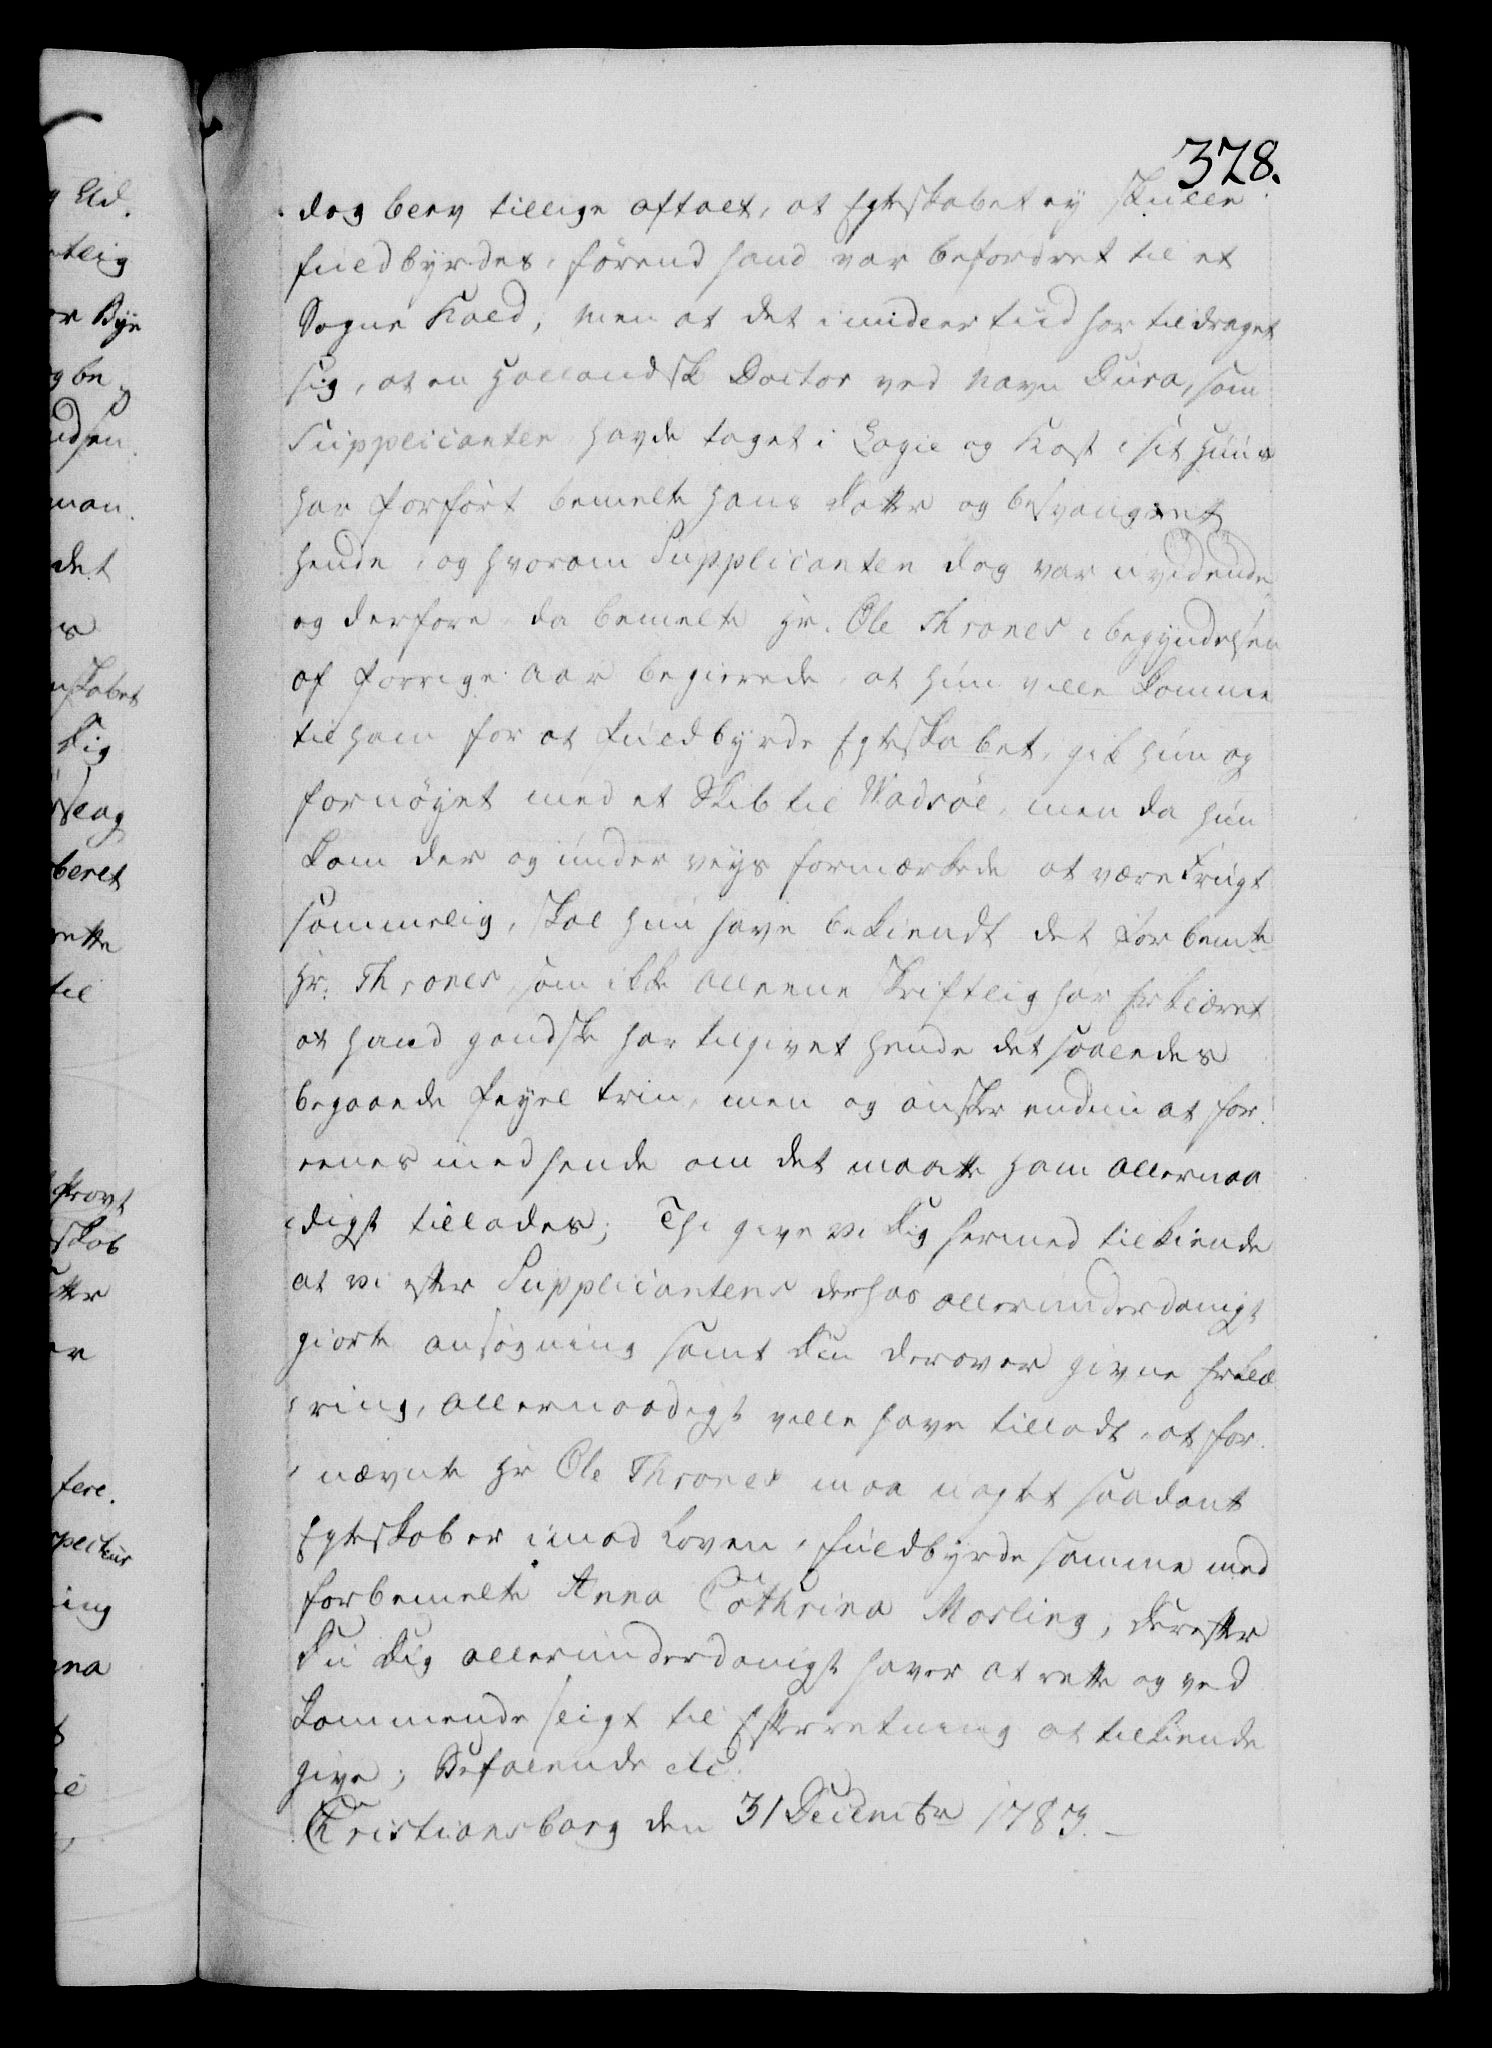 378.
dog blev tillige aftalt, at Egteskabet ey skulle
fuldbyrdes, förend hand var befordret til et
Sogne Kald, men at det imidlertiid har tildraget
sig, at en Hollandsk Doctor ved Navn Dura, som
Supplicanten havde taget i Logie og Kost i sit Huus
har forfört bemelte hans Datter og besvangret
hende, og hvorom Supplicanten dog var uvidende
og derfore da bemelte Hr. Ole Thrones i begyndelsen
af forrige Aar begierede, at hun ville komme
til ham for at fuldbyrde Egteskabet, gik hun og
fornöyet med et Skib til Wadsöe, men da hun
kom der og under veys formærkede at være Frugt
sommelig, skal hun have bekiendt det for bemte
Hr. Thrones, som ikke alleene skriftlig har erklæret
at hand gandske har tilgivet hende det saaledes
begaaede Feyel trin, men og önsker endnu at for
eenes med hende om det maatte ham allernaa
digst tillades; Thi give vi Dig hermed tilkiende
at vi efter Supplicantens derhos allerunderdanigst
giorte ansögning samt Din derover givne Erklæ
ring, allernaadigst ville have tilladt, at for
nævnte Hr Ole Thrones maa uagtet saadant
Egteskab er imod Loven, fuldbyrde samme med
forbemelte Anna Cathrina Morling, derefter
Du Dig allerunderdanigst haver at rette og ved
kommende sligt til Efterretning at tilkiende
give; Befalende etc.
Christiansborg den 31 Decembr 1783.